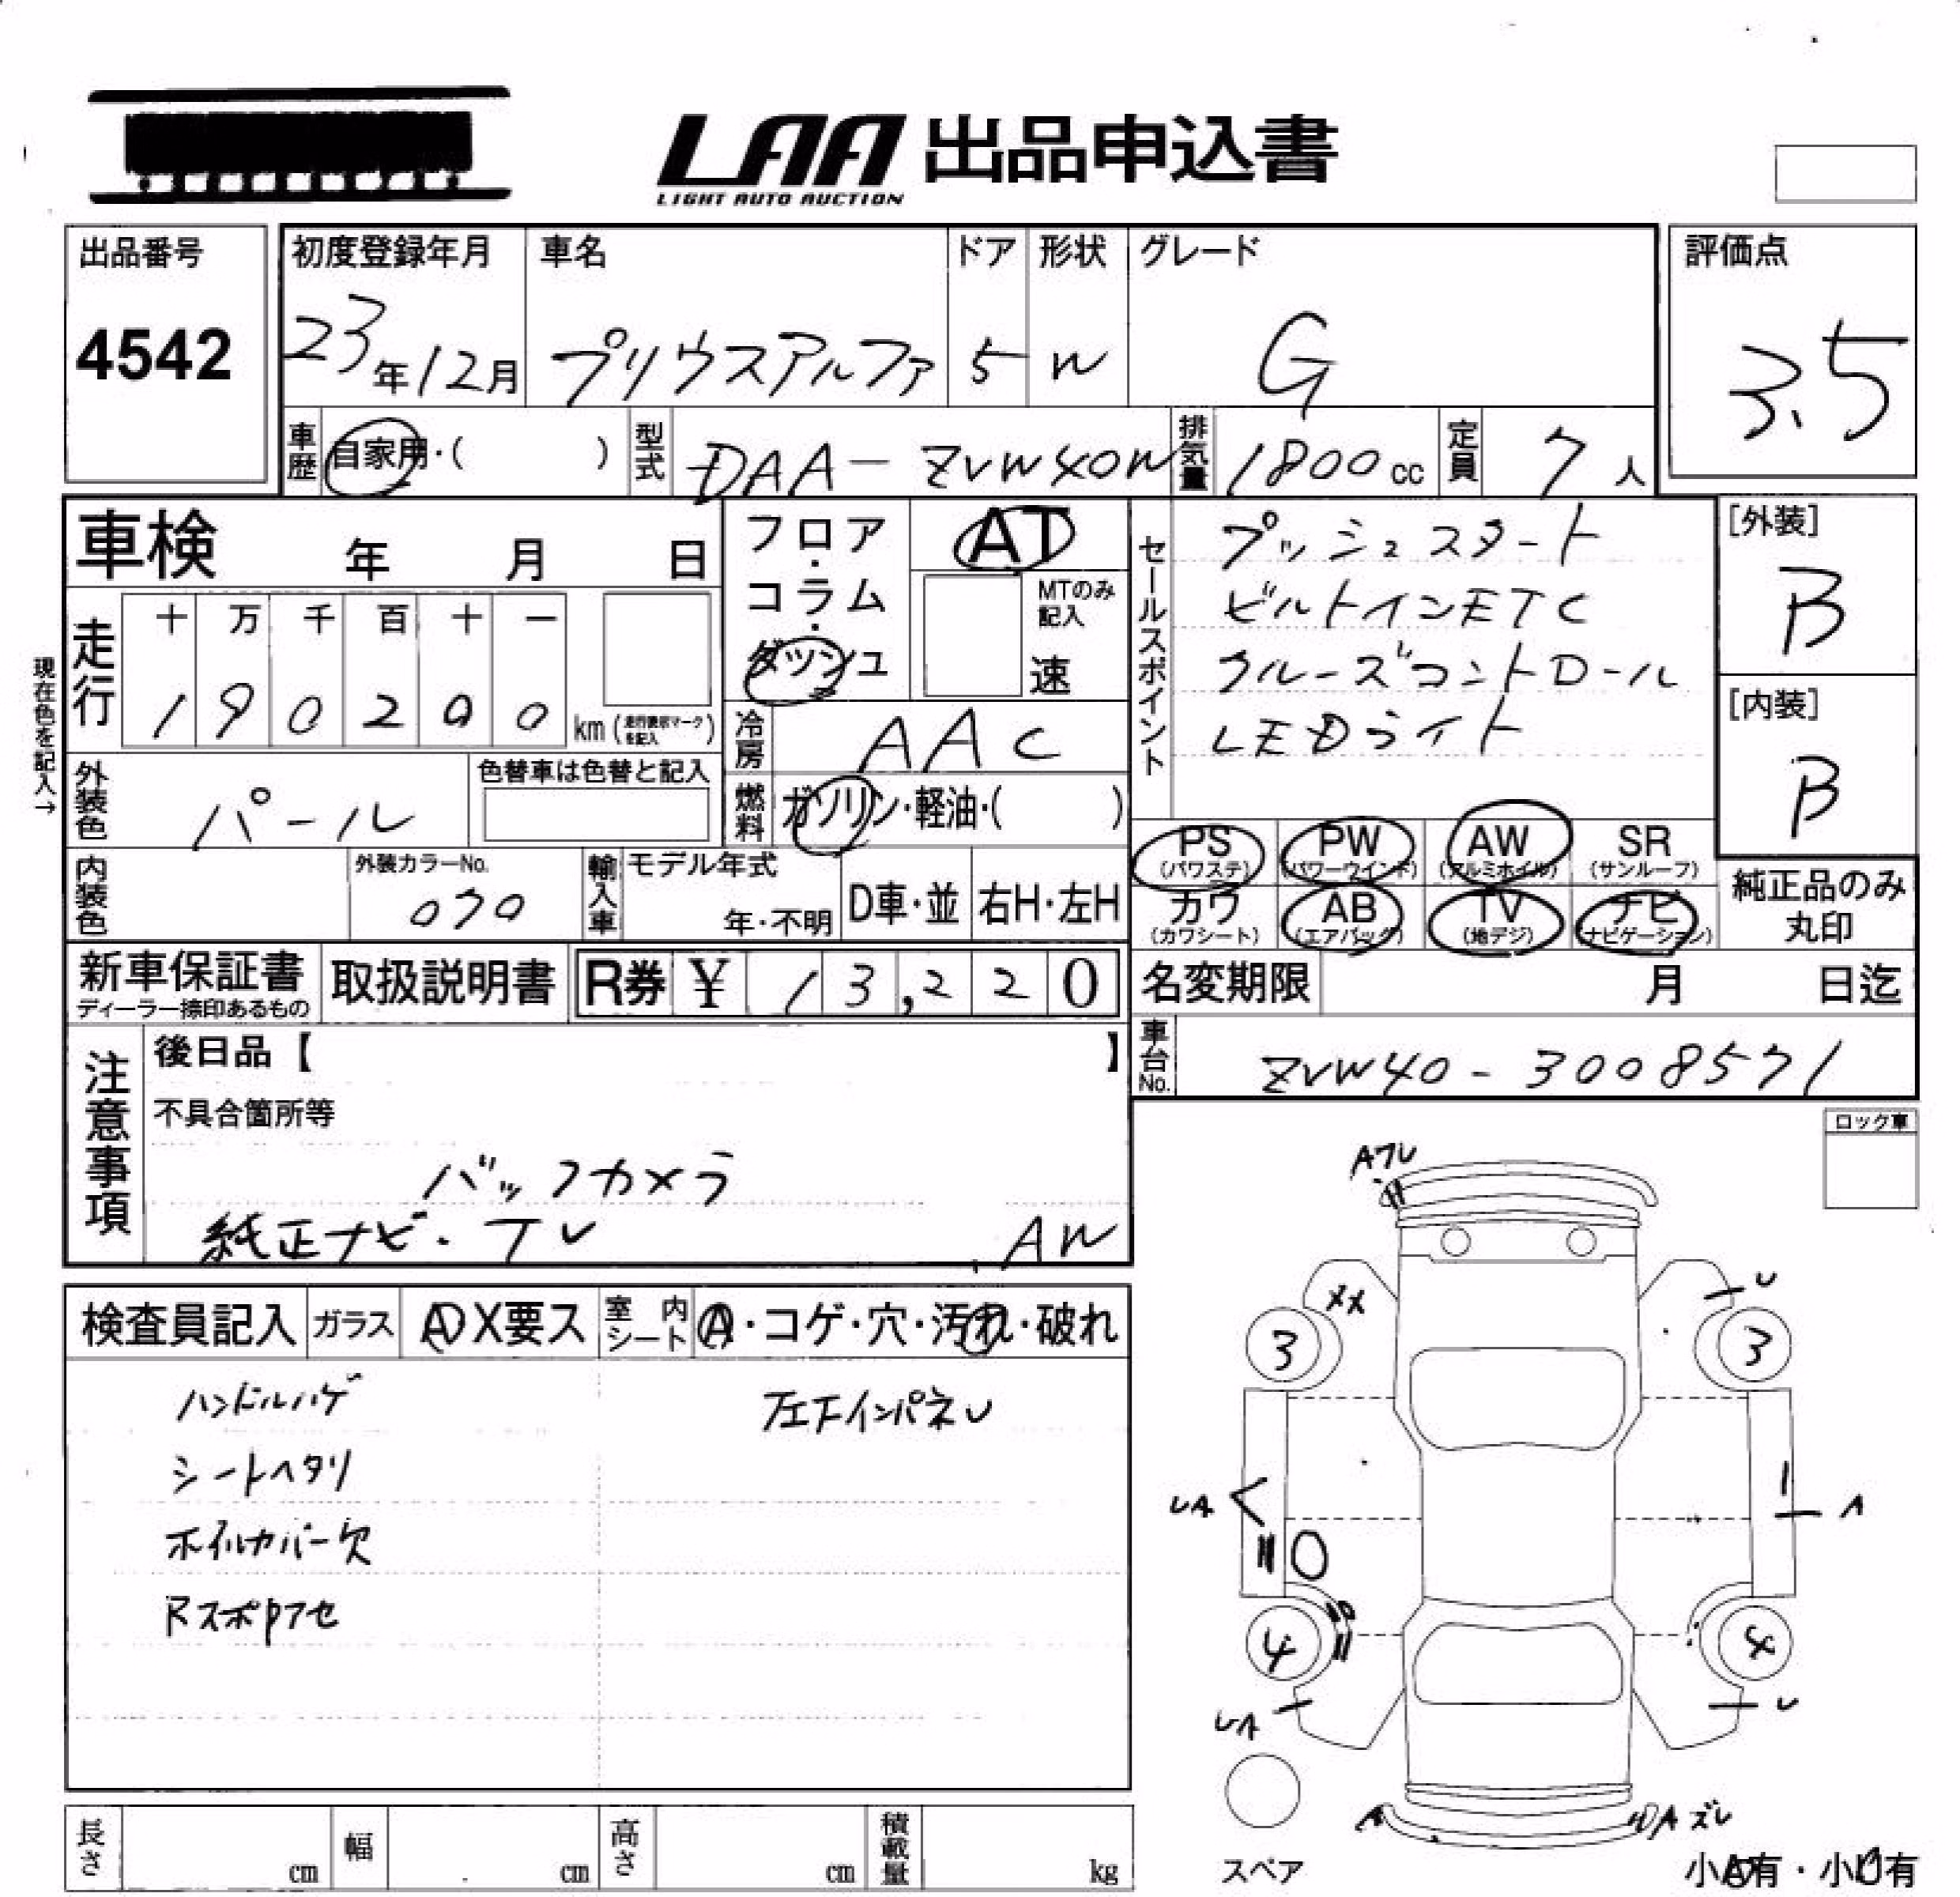 LAA 出品申込書
LIGHT AUTO AUCTION
出品番号
4542
初度登録年月
23年12月
車名
プリウスアルファ
ドア
5
形状
W
グレード
G
評価点
3.5
車歴
自家用・( )
型式
DAA-ZVW40W
排気量
1800cc
定員
7人
車検 年 月 日
フロア・コラム・ダッシュ
AT
MTのみ記入
速
セールスポイント
プッシュスタート
ビルトインETC
クルーズコントロール
LEDライト
[外装]
B
[内装]
B
現在色を記入→
走行
十 万 千 百 十 一
1 9 0 2 0 0 km (走行表示マークを記入)
冷房
AAC
外装色
パール
色替車は色替と記入
燃料
ガソリン・軽油・( )
PS (パワステ) PW (パワーウインド) AW (アルミホイル) SR (サンルーフ)
カワ (カワシート) AB (エアバック) TV (地デジ) ナビ (ナビゲーション)
純正品のみ丸印
内装色
外装カラーNo.
070
輸入車
モデル年式
年・不明
D車・並
右H・左H
新車保証書
ディーラー捺印あるもの
取扱説明書
R券 ¥ 13,220
名変期限 月 日迄
車台No.
ZVW40-3008571
注意事項
後日品【 】
不具合箇所等
バックカメラ
純正ナビ・TV AW
ロック車
検査員記入 ガラス A X要ス 室内シート A・コゲ・穴・汚れ・破れ
ハンドルハゲ 左下インパネU
シートヘタリ
ホイルカバー欠
RスポPアセ
Aワレ
XX U
3 3
UA A
4 4
UA U
A Aズレ
スペア
小A有・小U有
長さ cm 幅 cm 高さ cm 積載量 kg